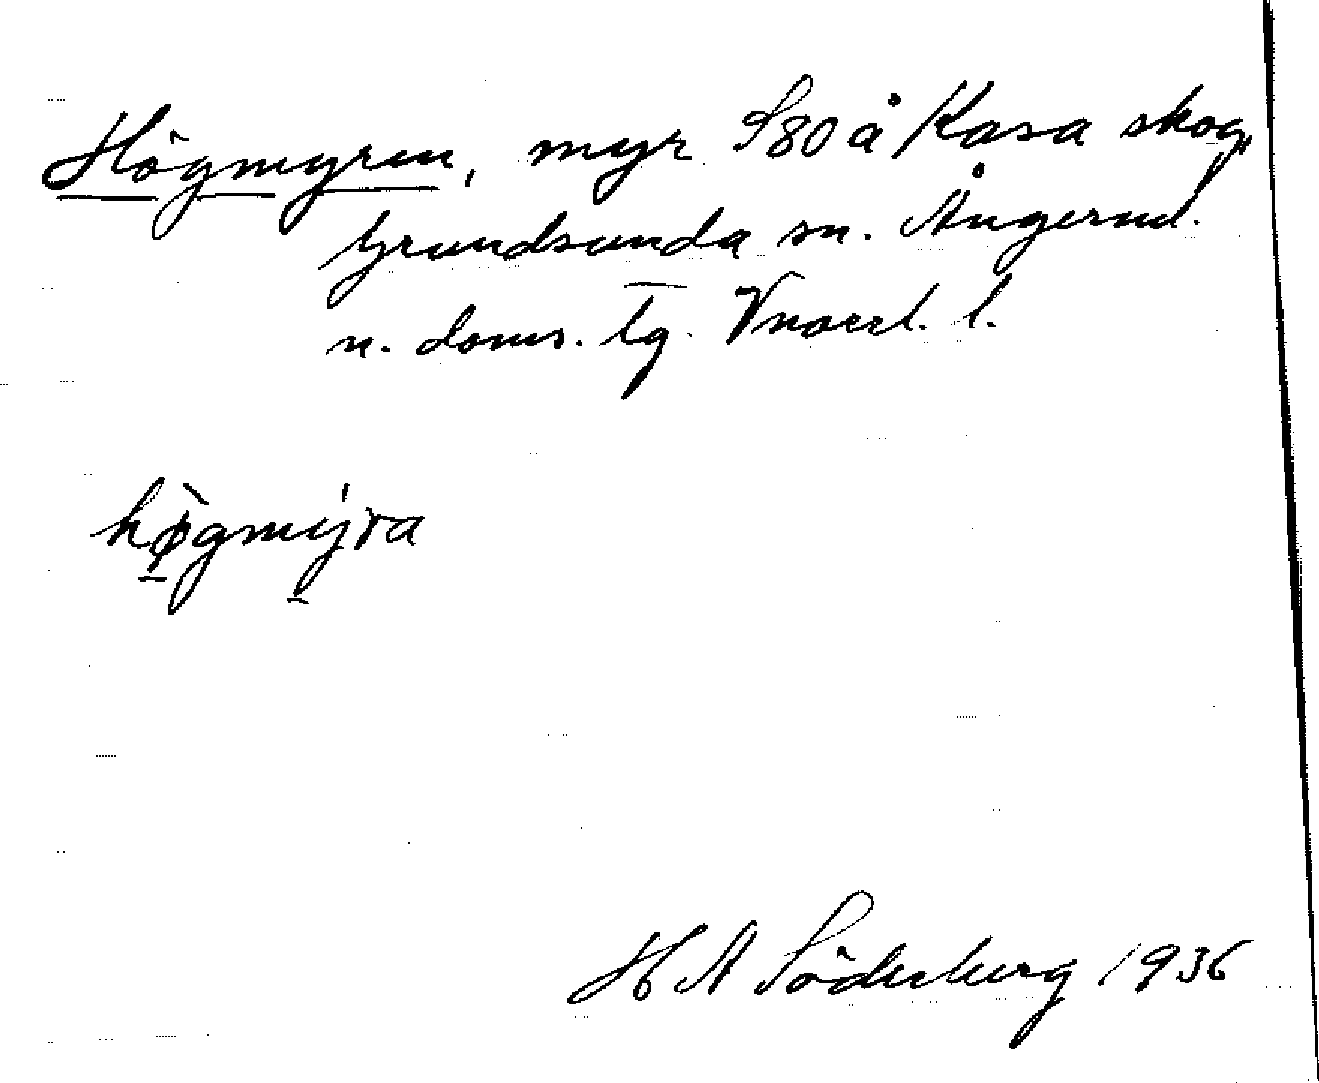 Högmyren, myr S80å Kasa skog,
Grundsunda sn. Ångerml.
n. doms. tg. Vnorrl. l.
hø̀gmýra
H A Söderberg 1936